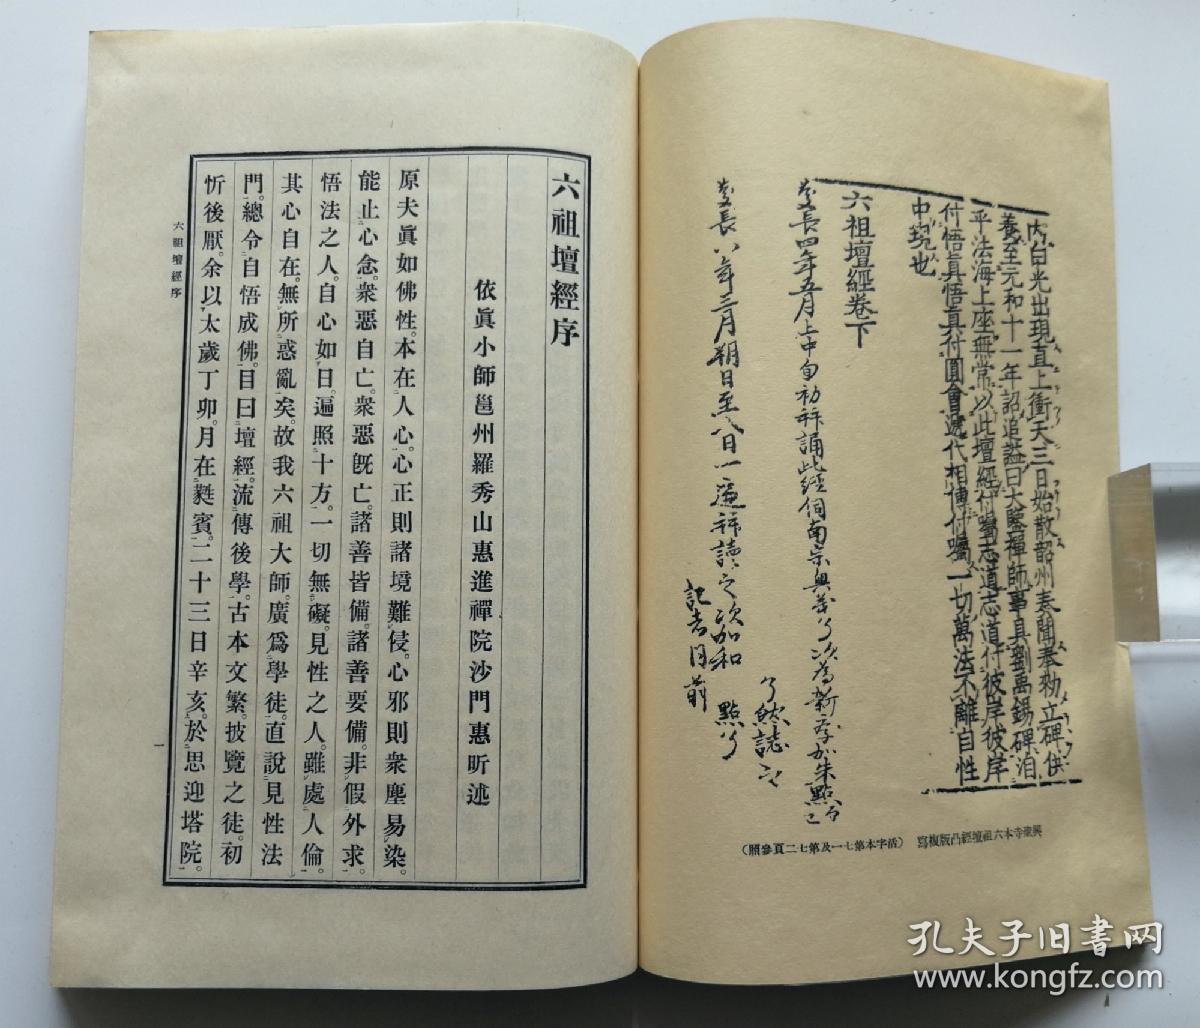 內白光出現直上衝天三日始散韶州奏聞奉勑立碑供
養至元和十一年詔追謚曰大鑒禪師事具劉禹錫碑洎
乎法海上座無常以此壇經付囑志道志道付彼岸彼岸
付悟眞悟眞付圓會遞代相傳付囑一切萬法不離自性
中現也
六祖壇經卷下
慶長四年五月上中旬初拜誦此經
慶長八年三月朔日至八日一遍拜讀之次加和點了
記者同前
了然誌之
興聖寺本六祖壇經凸版複寫(活字本第七一及第七二頁參照)
六祖壇經序
依眞小師邕州羅秀山惠進禪院沙門惠昕述
原夫眞如佛性。本在人心。心正則諸境難侵。心邪則衆塵易染。
能止心念。衆惡自亡。衆惡既亡。諸善皆備。諸善要備。非假外求。
悟法之人。自心如日。遍照十方。一切無礙。見性之人。雖處人倫。
其心自在。無所惑亂矣。故我六祖大師。廣爲學徒。直說見性法
門。總令自悟成佛。目曰壇經。流傳後學。古本文繁。披覽之徒。初
忻後厭。余以太歲丁卯。月在蕤賓。二十三日辛亥。於思迎塔院。
六祖壇經序
一
孔夫子旧书网
www.kongfz.com